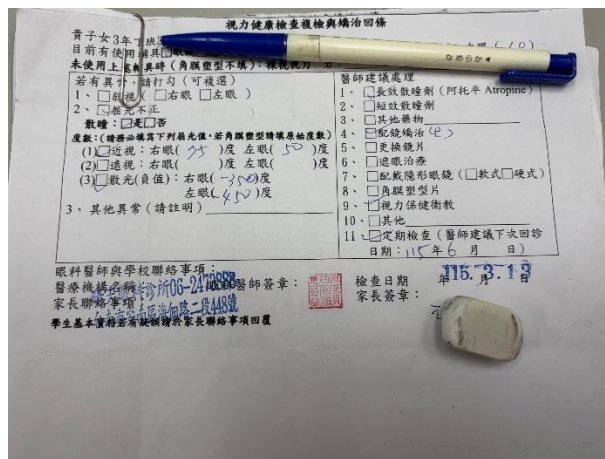 視力健康檢查複檢與矯治回條
貴子女3年丁班
目前有使用輔具
未使用上述輔具時(角膜塑型不填):裸視視力
若有異常,請打勾(可複選)
1、□弱視(□右眼 □左眼)
2、☑屈光不正
散瞳:☑是□否
度數:(請務必填寫下列屈光值,若角膜塑型請填原始度數)
(1)☑近視:右眼( 75 )度 左眼( 50 )度
(2)□遠視:右眼( )度 左眼( )度
(3)☑散光(負值):右眼( -350 )度
左眼( -450 )度
3、其他異常(請註明)
醫師建議處理
1、☑長效散瞳劑(阿托平 Atropine)
2、□短效散瞳劑
3、□其他藥物
4、☑配鏡矯治
5、□更換鏡片
6、□遮眼治療
7、□配戴隱形眼鏡(□軟式□硬式)
8、□角膜塑型片
9、☑視力保健衛教
10、□其他
11、☑定期檢查(醫師建議下次回診
日期:115年6月 日)
眼科醫師與學校聯絡事項:
醫療機構名稱: 診所06-2472888 醫師簽章:
檢查日期 年 月 日
115.3.13
家長聯絡事項:
二段448號
家長簽章:
學生基本資料若有疑誤請於家長聯絡事項回覆
なめらか